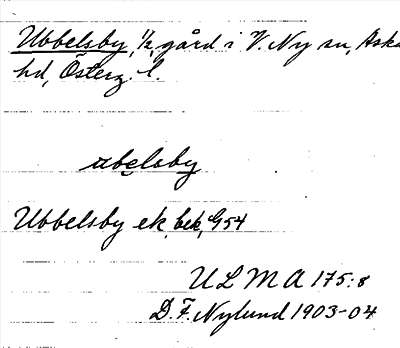 Ubbelsby, ½ gård i V. Ny sn, Aska
hd, Österg. l.
ɑbelsby
Ubbelsby ek, bek, G54
ULMA 175:8
D. F. Nylund 1903-04